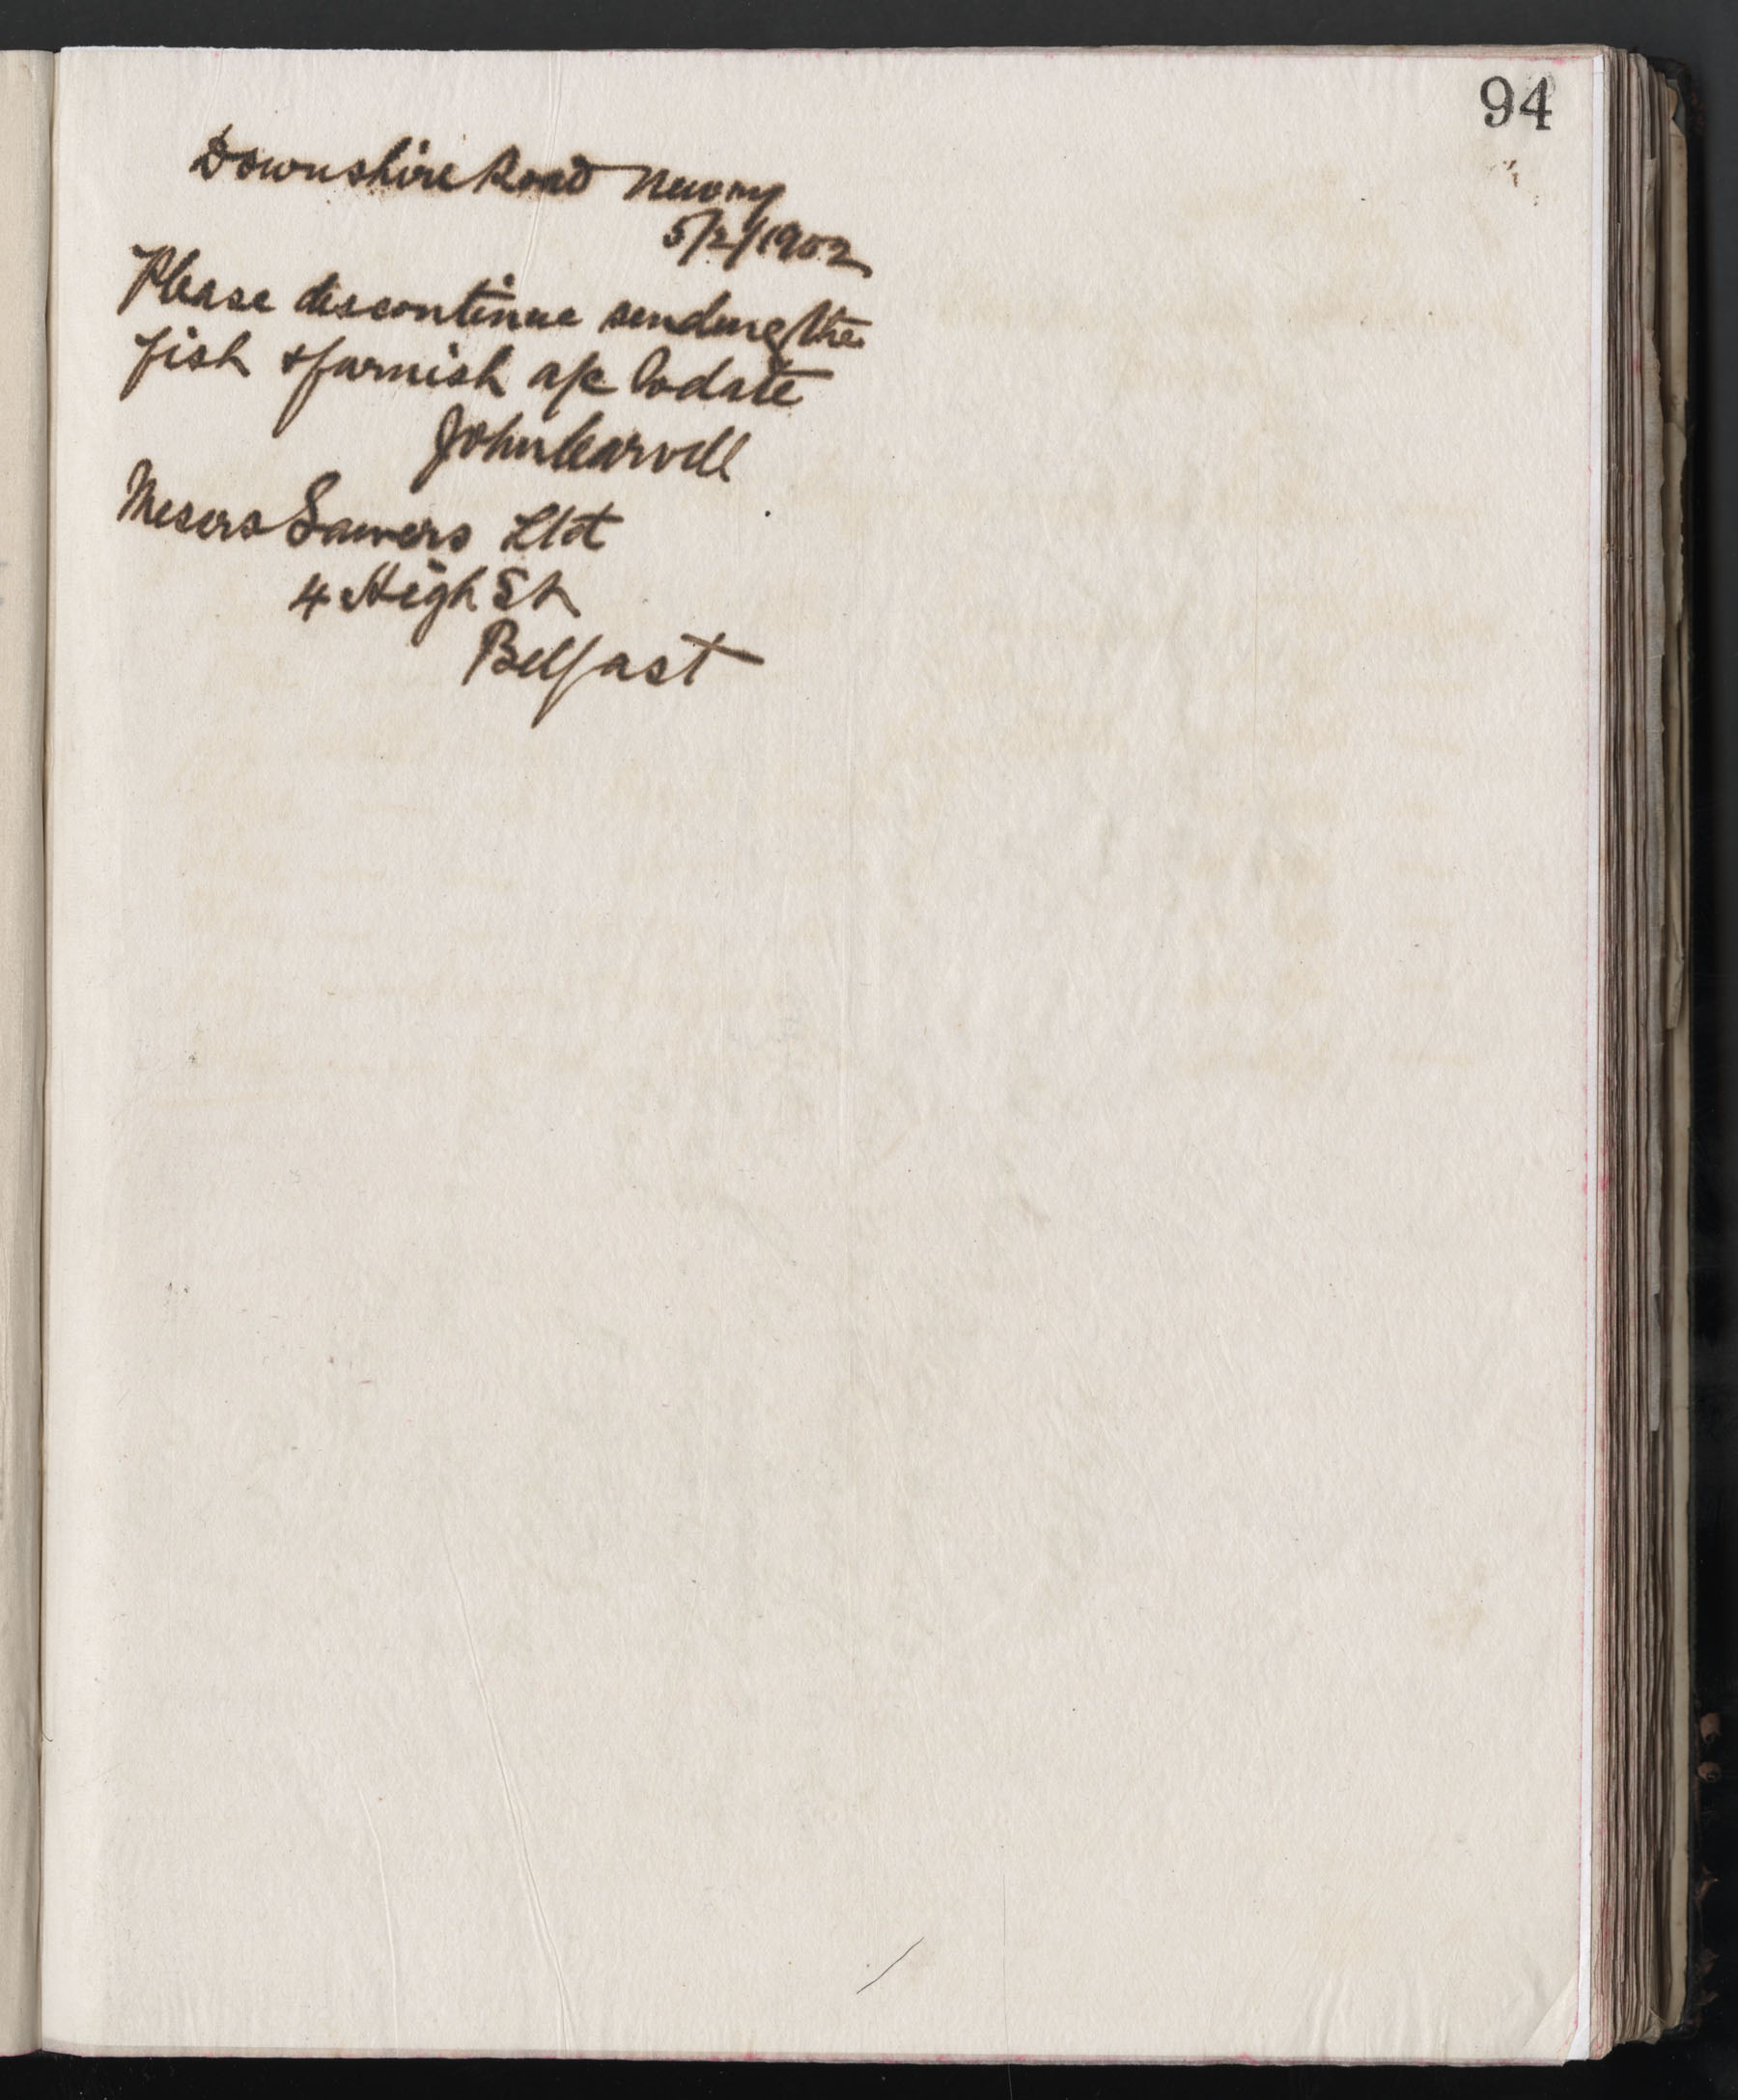 94
Downshire Road Newry
5/2/1902
Please discontinue sending the
fish & furnish a/c to date
John Carvill
Messrs Sawers Ltd
4 High St
Belfast